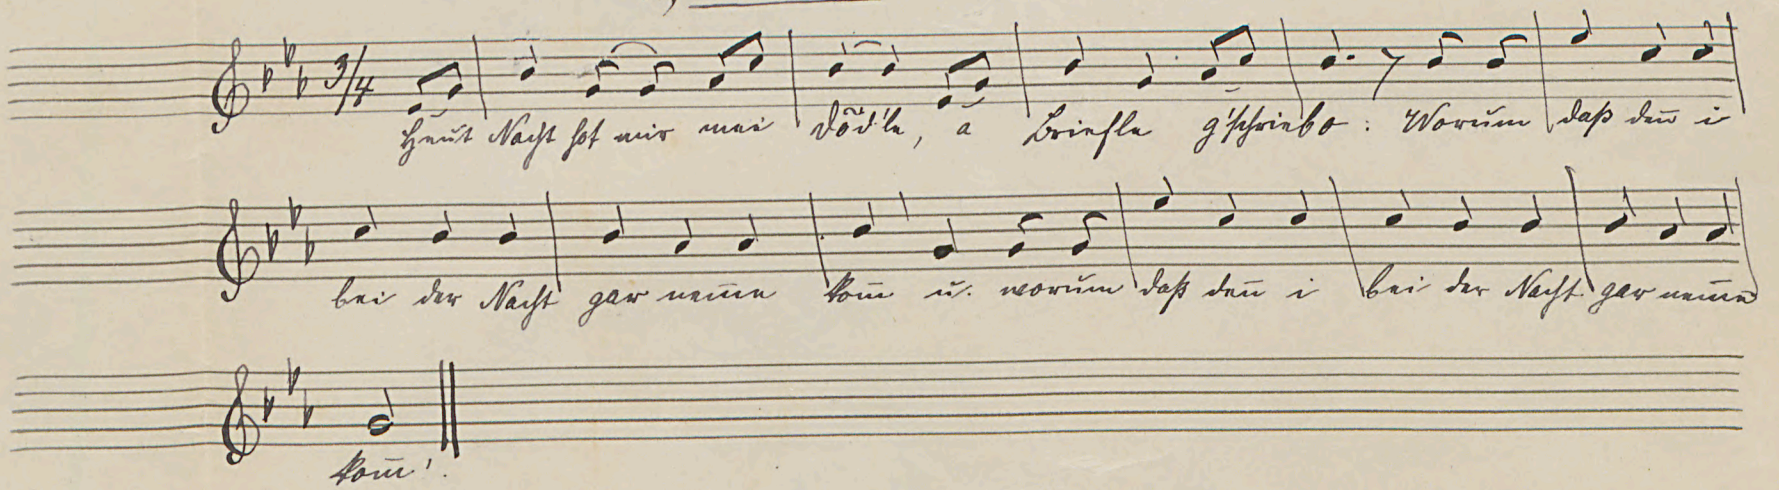 3/4
Heut Nacht hot mir mei Dod'le, a Briefle g'schriebo: Worum daß deñ i
bei der Nacht gar nem̃e kom̃ u. worum daß deñ i bei der Nacht gar nem̃e
kom̃'.